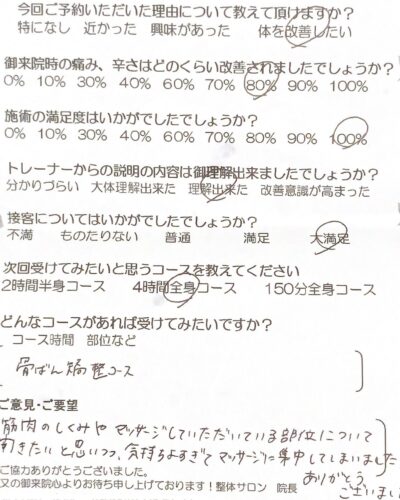 今回ご予約いただいた理由について教えて頂けますか?
特になし 近かった 興味があった 体を改善したい
御来院時の痛み、辛さはどのくらい改善されましたでしょうか?
0% 10% 30% 40% 60% 70% 80% 90% 100%
施術の満足度はいかがでしたでしょうか?
0% 10% 30% 40% 60% 70% 80% 90% 100%
トレーナーからの説明の内容は御理解出来ましたでしょうか?
分かりづらい 大体理解出来た 理解出来た 改善意識が高まった
接客についてはいかがでしたでしょうか?
不満 ものたりない 普通 満足 大満足
次回受けてみたいと思うコースを教えてください
2時間半身コース 4時間全身コース 150分全身コース
どんなコースがあれば受けてみたいですか?
コース時間 部位など
骨ばん矯整コース
ご意見・ご要望
筋肉のしくみや マッサージしていただいている部位について
聞きたいと思いつつ、気持ちよすぎてマッサージに集中してしまいました
ご協力ありがとうございました。
ありがとう
又の御来院心よりお待ち申し上げております!整体サロン 院長
ございまし